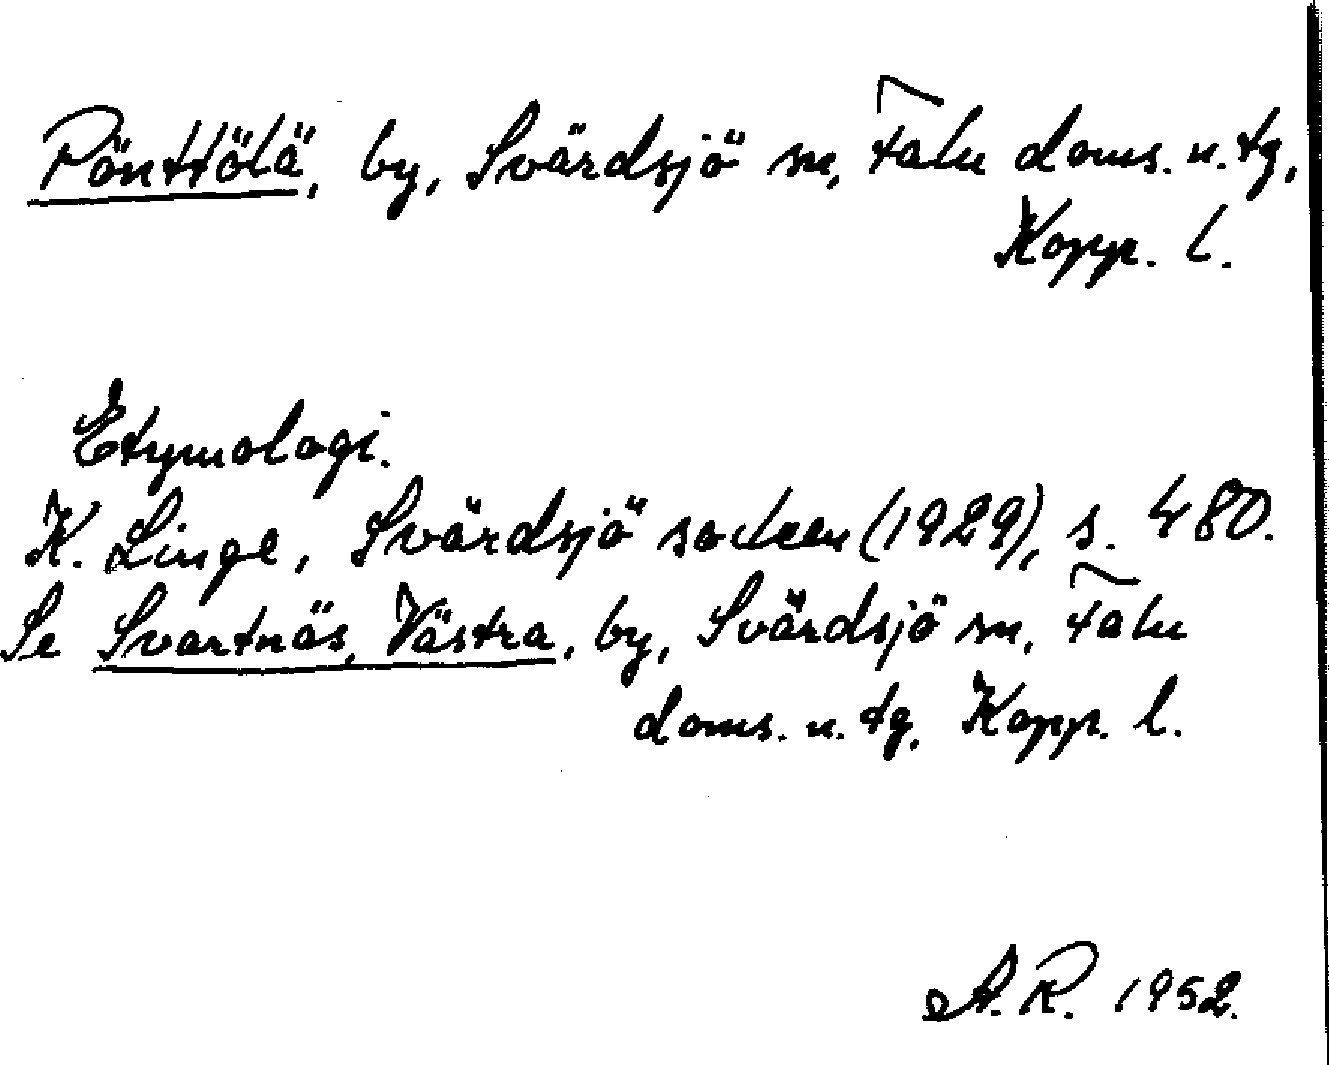 Pönttölä, by, Svärdsjö sn, Falu doms. u. tg,
Kopp. l.
Etymologi.
K. Linge, Svärdsjö socken (1929), s. 480.
Se Svartnäs, Västra, by, Svärdsjö sn, Falu
doms. u. tg, Kopp. l.
A. R. 1952.